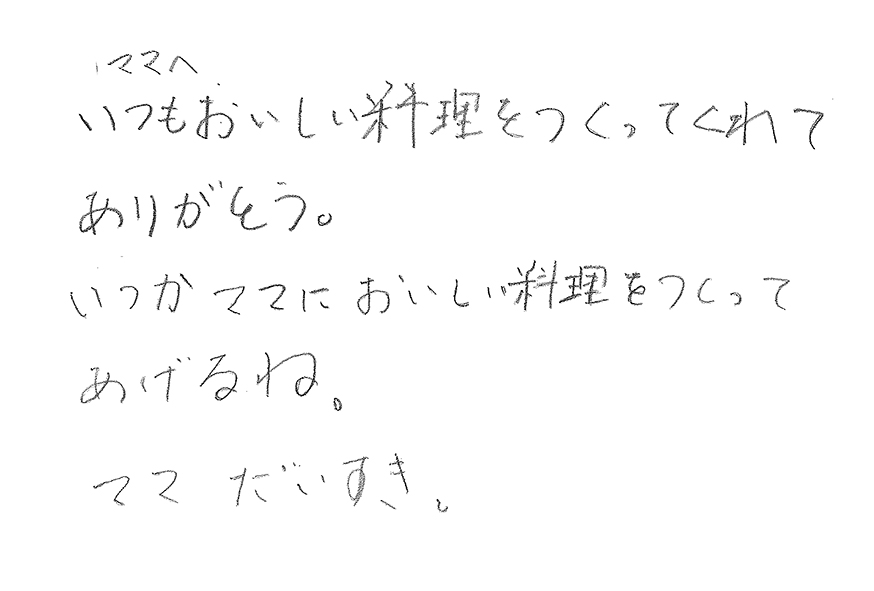 ママへ
いつもおいしい料理をつくってくれて
ありがとう。
いつかママにおいしい料理をつくって
あげるね。
ママ だいすき。